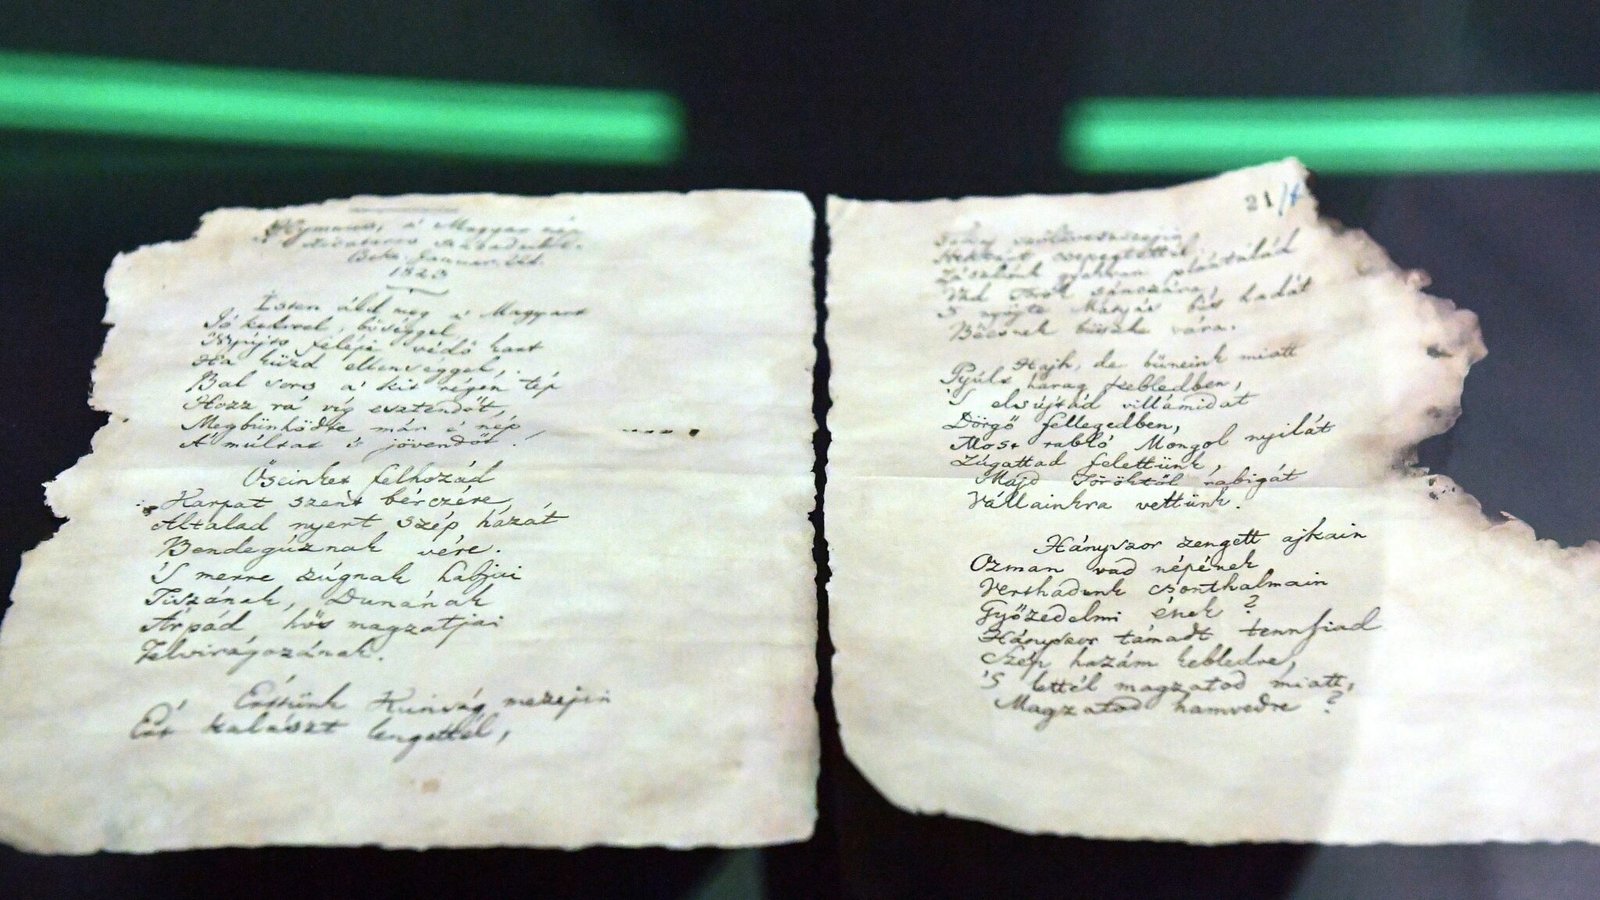 Hymnus, a' Magyar nép
zivataros századaiból.
Januar.
1823
Isten áld meg a' Magyart
Jó kedvvel, bőséggel,
Nyújts feléje védő kart
Ha küzd ellenséggel.
Bal sors a' kit régen tép
Hozz rá víg esztendőt,
Megbünhődte már e' nép
A' múltat 's jövendőt.
Őseinket felhozád
Karpat szent bérczére,
Általad nyert szép hazát
Bendegúznak vére.
'S merre zúgnak habjai
Tiszának, Dunának
Árpád hős magzatjai
Felvirágozának.
Értünk Kunság mezején
Ért kalászt lengettél,
21/
Tokaj szőlővesszején
Nektárt csepegtettél.
Zászlónk gyakran plántálád
Vad Török sánczára,
'S nyögte Mátyás bús hadát
Bécsnek büszke vára.
Hajh, de bűneink miatt
Gyúlt harag kebledben,
'S elsújtád villámidat
Dörgő fellegedben,
Most rabló Mongol nyilát
Zúgattad felettünk,
Majd Töröktől rabigát
Vállainkra vettünk.
Hányszor zengett ajkain
Ozman vad népének
Verthadunk csonthalmain
Győzedelmi ének?
Hányszor támadt tennfiad
Szép hazám kebledre,
'S lettél magzatod miatt,
Magzatod hamvedre?